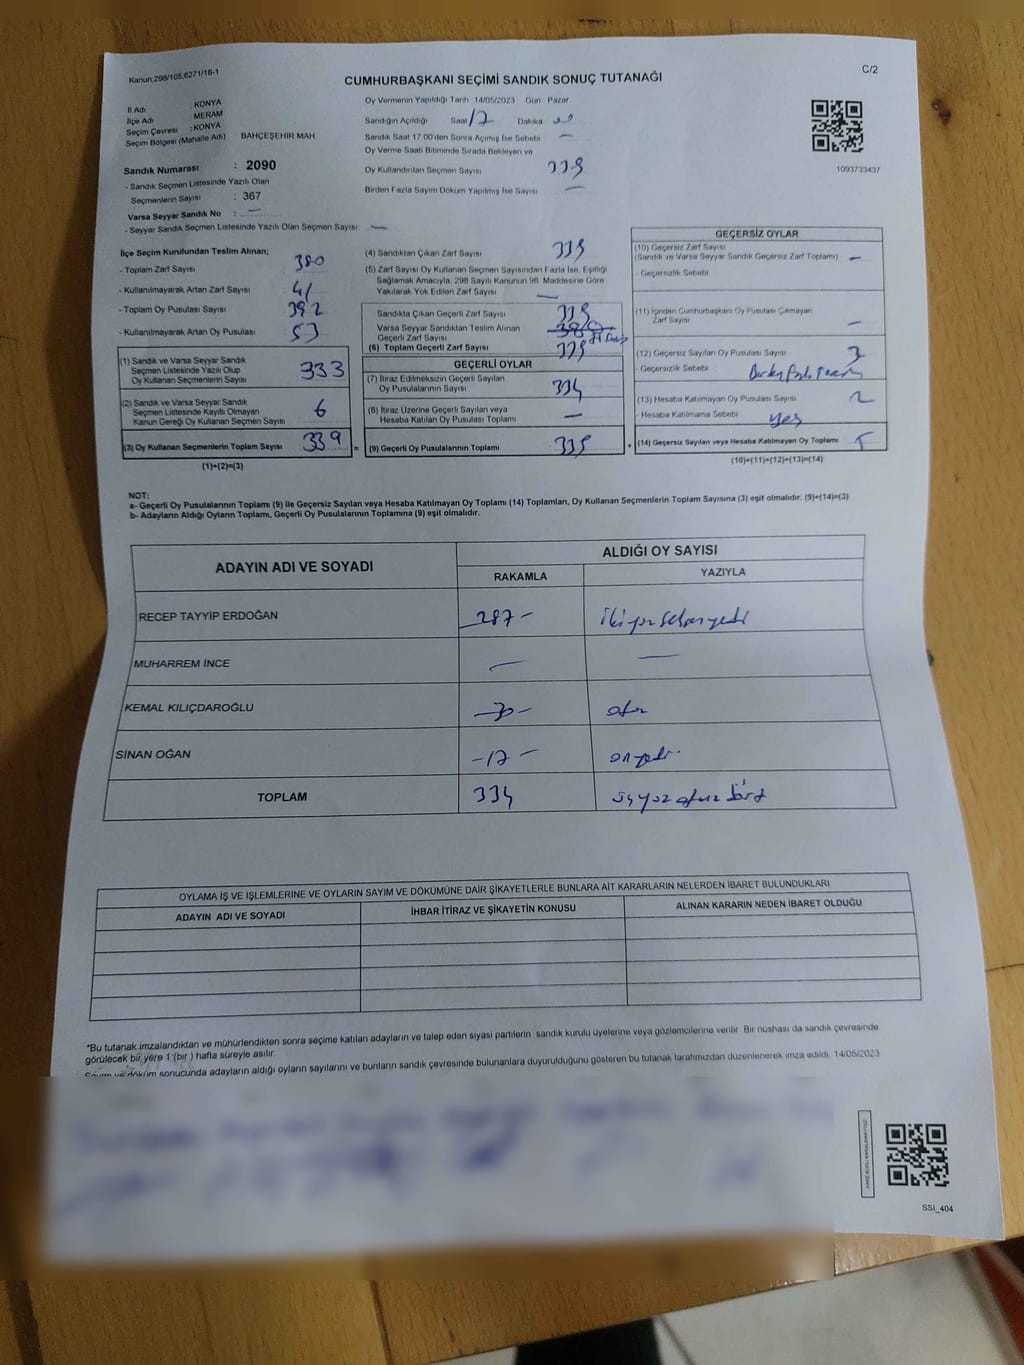 Kanun;298/105;6271/18-1
C/2
CUMHURBAŞKANI SEÇİMİ SANDIK SONUÇ TUTANAĞI
İl Adı : KONYA
İlçe Adı : MERAM
Seçim Çevresi : KONYA
Seçim Bölgesi (Mahalle Adı) BAHÇEŞEHİR MAH.
Sandık Numarası : 2090
- Sandık Seçmen Listesinde Yazılı Olan
Seçmenlerin Sayısı : 367
Varsa Seyyar Sandık No : —
- Seyyar Sandık Seçmen Listesinde Yazılı Olan Seçmen Sayısı: —
Oy Vermenin Yapıldığı Tarih :14/05/2023 Gün : Pazar
Sandığın Açıldığı Saat 17 Dakika 00
Sandık Saat 17.00'den Sonra Açımış İse Sebebi —
Oy Verme Saati Bitiminde Sırada Bekleyen ve
Oy Kullandırılan Seçmen Sayısı 339
Birden Fazla Sayım Döküm Yapılmış İse Sayısı —
1093733437
İlçe Seçim Kurulundan Teslim Alınan;
- Toplam Zarf Sayısı 380
- Kullanılmayarak Artan Zarf Sayısı 41
- Toplam Oy Pusulası Sayısı 392
- Kullanılmayarak Artan Oy Pusulası 53
(1) Sandık ve Varsa Seyyar Sandık
Seçmen Listesinde Yazılı Olup
Oy Kullanan Seçmenlerin Sayısı 333
(2) Sandık ve Varsa Seyyar Sandık
Seçmen Listesinde Kayıtlı Olmayan
Kanun Gereği Oy Kullanan Seçmen Sayısı 6
(3) Oy Kullanan Seçmenlerin Toplam Sayısı 339
(1)+(2)=(3)
(4) Sandıktan Çıkan Zarf Sayısı 339
(5) Zarf Sayısı Oy Kullanan Seçmen Sayısından Fazla İse, Eşitliği
Sağlamak Amacıyla, 298 Sayılı Kanunun 98. Maddesine Göre
Yakılarak Yok Edilen Zarf Sayısı —
Sandıkta Çıkan Geçerli Zarf Sayısı 339
Varsa Seyyar Sandıktan Teslim Alınan
Geçerli Zarf Sayısı
(6) Toplam Geçerli Zarf Sayısı 339
GEÇERLİ OYLAR
(7) İtiraz Edilmeksizin Geçerli Sayılan
Oy Pusulalarının Sayısı 334
(8) İtiraz Üzerine Geçerli Sayılan veya
Hesaba Katılan Oy Pusulası Toplamı —
= (9) Geçerli Oy Pusulalarının Toplamı
GEÇERSİZ OYLAR
(10) Geçersiz Zarf Sayısı
(Sandık ve Varsa Seyyar Sandık Geçersiz Zarf Toplamı) —
- Geçersizlik Sebebi :
(11) İçinden Cumhurbaşkanı Oy Pusulası Çıkmayan
Zarf Sayısı —
(12) Geçersiz Sayılan Oy Pusulası Sayısı 3
- Geçersizlik Sebebi :
(13) Hesaba Katılmayan Oy Pusulası Sayısı 2
- Hesaba Katılmama Sebebi :
+ (14) Geçersiz Sayılan veya Hesaba Katılmayan Oy Toplamı 5
(10)+(11)+(12)+(13)=(14)
NOT:
a- Geçerli Oy Pusulalarının Toplamı (9) ile Geçersiz Sayılan veya Hesaba Katılmayan Oy Toplamı (14) Toplamları, Oy Kullanan Seçmenlerin Toplam Sayısına (3) eşit olmalıdır. (9)+(14)=(3)
b- Adayların Aldığı Oyların Toplamı, Geçerli Oy Pusulalarının Toplamına (9) eşit olmalıdır.
ADAYIN ADI VE SOYADI ALDIĞI OY SAYISI
RAKAMLA YAZIYLA
RECEP TAYYİP ERDOĞAN 287 – ikiyüzseksenyedi
MUHARREM İNCE — —
KEMAL KILIÇDAROĞLU – 30 – otuz
SİNAN OĞAN – 17 – onyedi
TOPLAM 334 üçyüz otuz dört
OYLAMA İŞ VE İŞLEMLERİNE VE OYLARIN SAYIM VE DÖKÜMÜNE DAİR ŞİKAYETLERLE BUNLARA AİT KARARLARIN NELERDEN İBARET BULUNDUKLARI
ADAYIN ADI VE SOYADI İHBAR İTİRAZ VE ŞİKAYETİN KONUSU ALINAN KARARIN NEDEN İBARET OLDUĞU
*Bu tutanak imzalandıktan ve mühürlendikten sonra seçime katılan adayların ve talep eden siyasi partilerin sandık kurulu üyelerine veya gözlemcilerine verilir. Bir nüshası da sandık çevresinde
görülecek bir yere 1 (bir ) hafta süreyle asılır.
Sayım ve döküm sonucunda adayların aldığı oyların sayılarını ve bunların sandık çevresinde bulunanlara duyurulduğunu gösteren bu tutanak tarafımızdan düzenlenerek imza edildi. 14/05/2023
SSI_404